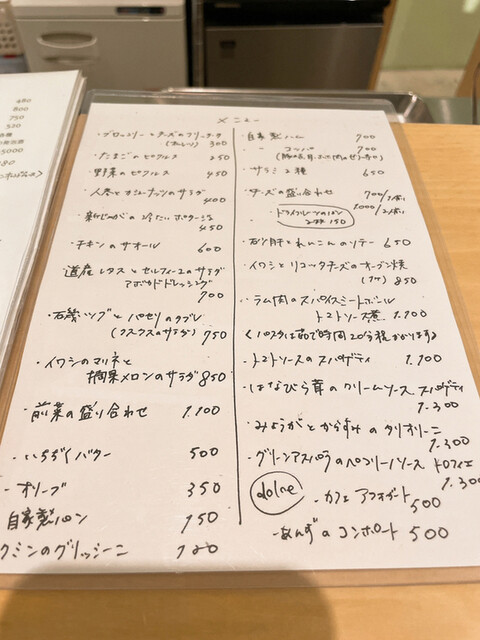 480
800
750
520
5000
80
メニュー
・ブロッコリーとチーズのフリッタータ
(オムレツ) 300
・たまごのピクルス 250
・野菜のピクルス 450
・人参とナッツのサラダ
400
・新じゃがの冷たいポタージュ
450
・チキンのサオール 600
道産レタスとセルフィーユのサラダ
アボカドドレッシング
700
・石磯ツブとパセリのタブレ
(クスクスのサラダ) 750
・イワシのマリネと
摘果メロンのサラダ 850
・前菜の盛り合わせ 1.100
・いちぢくバター 500
・オリーブ 350
自家製パン 150
クミンのグリッシーニ 120
自家製ハム 900
〃 コッパ 900
・サラミ2種 650
・チーズの盛り合わせ 700/1人前
1000/2人前
・ドライフルーツのパン
2枚 150
・砂肝とれんこんのソテー 650
・イワシとリコッタチーズのオーブン焼
850
・ラム肉のスパイスミートボール
トマトソース煮 1.200
(パスタは茹で時間20分程かかります)
・トマトソースのスパゲティ 1.100
・はなびら茸のクリームソース スパゲティ
1.300
・みょうがとからすみのタリオリーニ
1.300
・グリーンアスパラのペコリーノソース トロフィエ
1.300
dolce
・カフェアフォガート
500
・あんずのコンポート 500